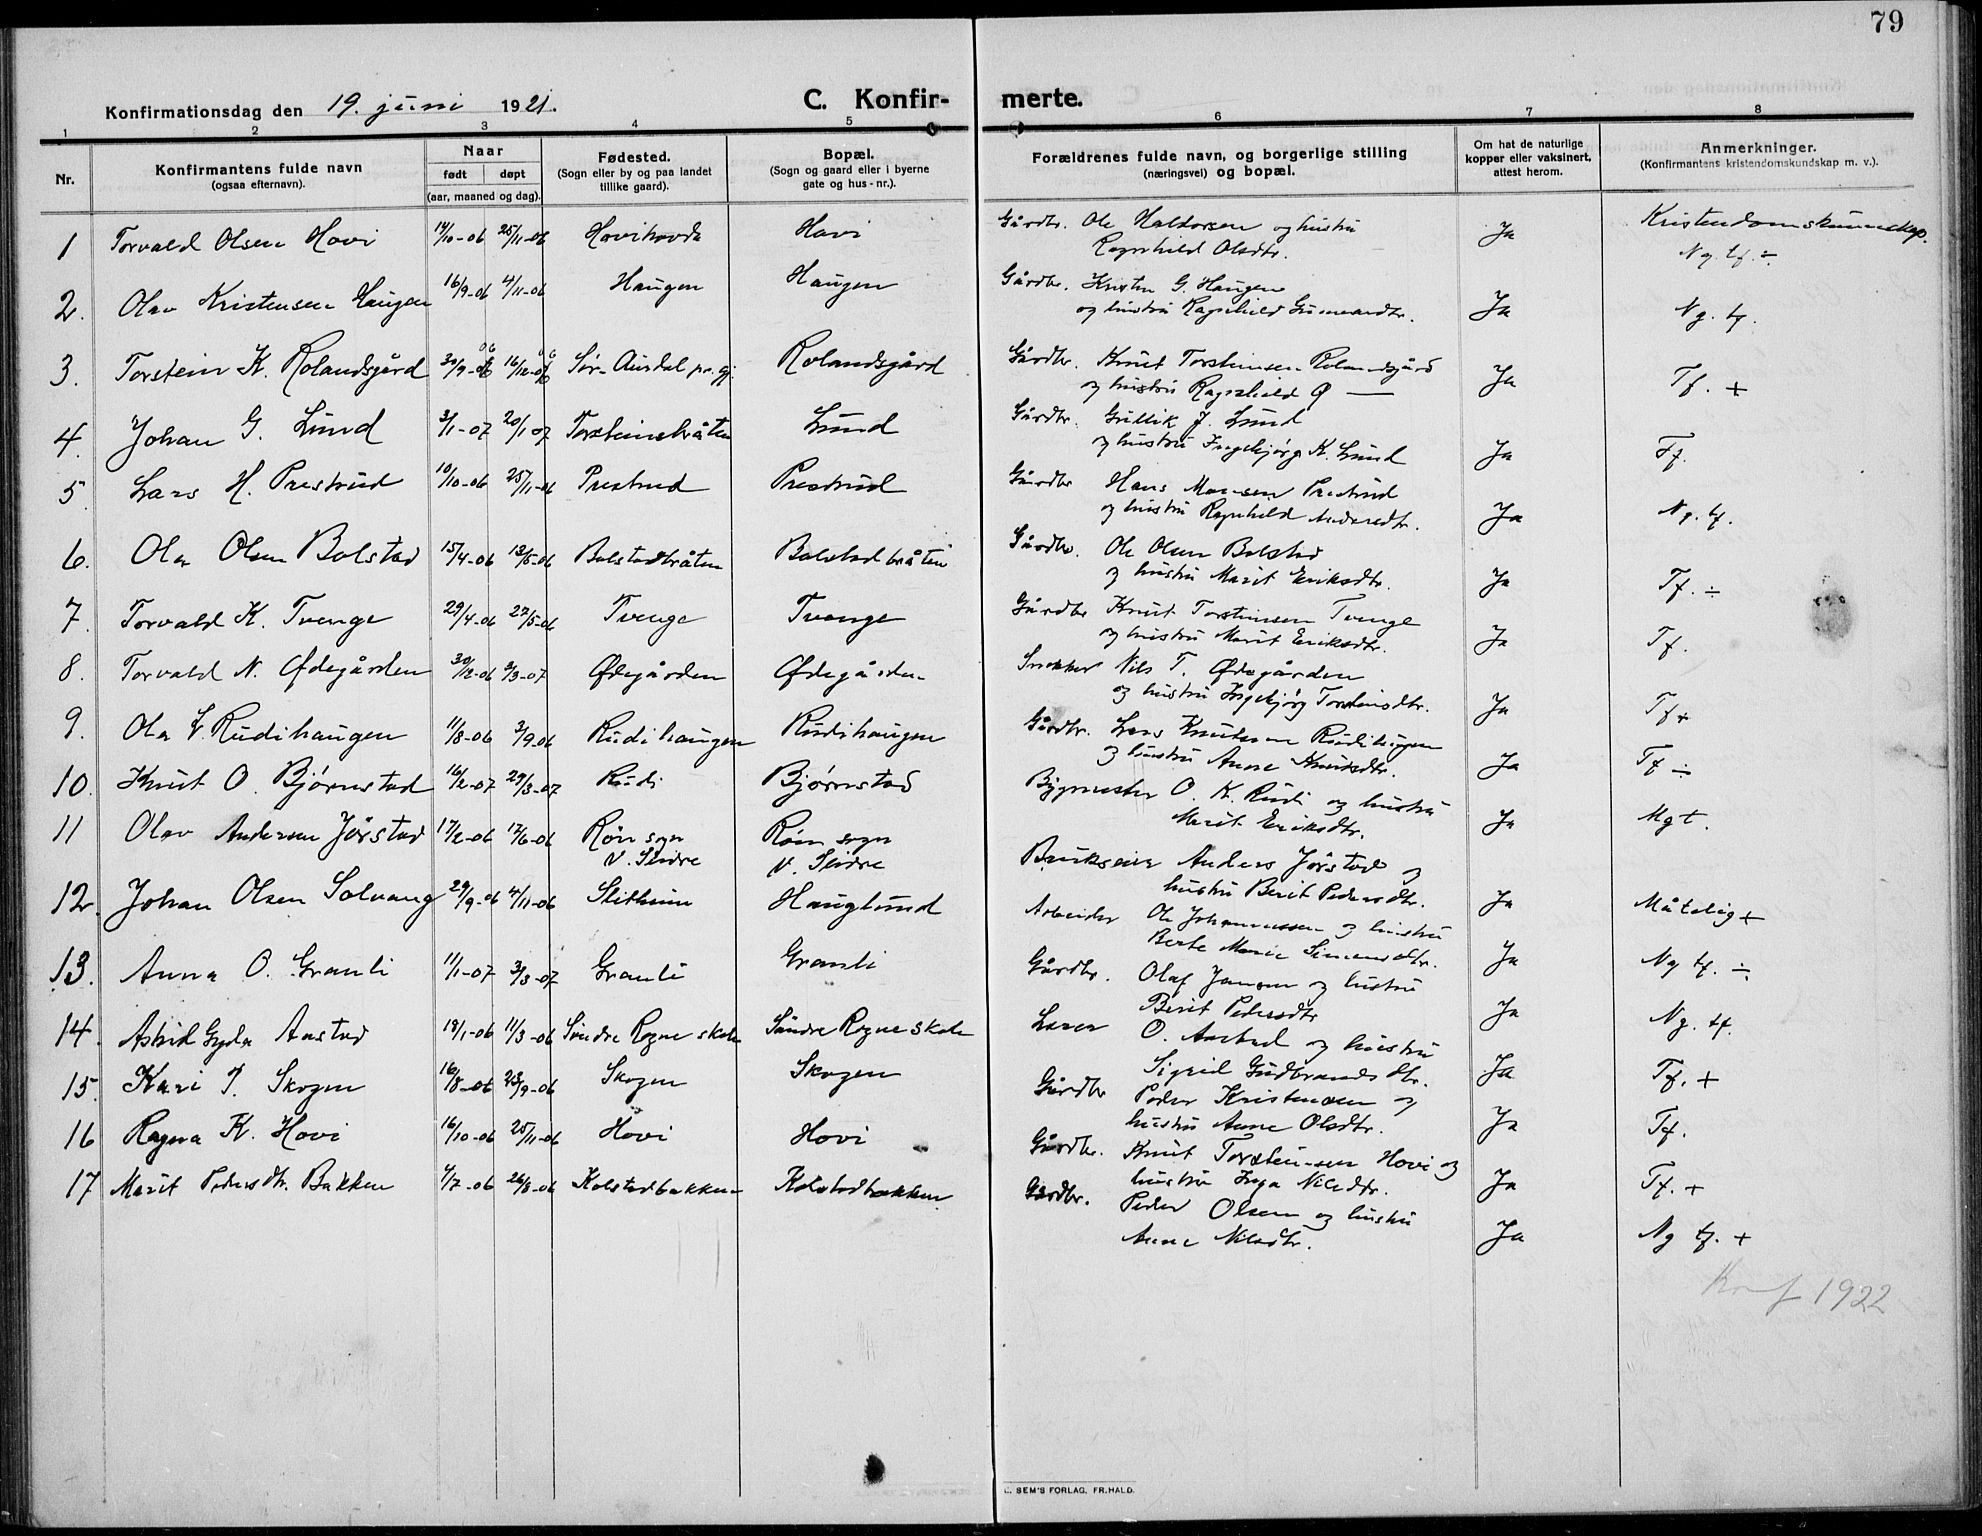 79
Konfirmationsdag den 19. juni 1921.
C. Konfir- merte.
1 2 3 4 5 6 7 8
Nr.
Konfirmantens fulde navn
(ogsaa efternavn).
Naar
født døpt
(aar, maaned og dag).
Fødested.
(Sogn eller by og paa landet
tillike gaard).
Bopæl.
(Sogn og gaard eller i byerne
gate og hus-nr.).
Forældrenes fulde navn, og borgerlige stilling
(næringsvei) og bopæl.
Om hat de naturlige
kopper eller vaksinert,
attest herom.
Anmerkninger.
(Konfirmantens kristendomskundskap m. v.).
Kristendomskunnskap.
1 Torvald Olsen Hovi 14/10-06 25/11-06 Hovihovda Hovi Gårdbr. Ole Haldorsen og hustru Ja Ng. tf. ÷
Ragnhild Olsdtr.
2. Olav Kristensen Haugen 16/9-06 4/11-06 Haugen Haugen Gårdbr. Kristen G. Haugen Ja Ng. tf.
og hustru Ragnhild
3. Torstein K. Rolandsgård 30/9-06 16/12-06 Sør-Aurdal pr.gj. Rolandsgård Gårdbr. Knut Torsteinsen Rolandsgård Ja Tf. +
og hustru Ragnhild Ø —
4. Johan G. Lund 3/1-07 20/1 07 Torsteinsbråten Lund Gårdbr. Gullik J. Lund Ja Tf.
og hustru Ingebjørg K. Lund
5. Lars H. Prestrud 10/10-06 25/11-06 Prestrud Prestrud Gårdbr Hans Monsen Prestrud Ja Ng. tf.
og hustru Ragnhild Andersdtr.
6. Ola Olsen Bolstad 15/4-06 13/5-06 Bolstadbråten Bolstadbråten Gårdbr. Ole Olsen Bolstad Ja Tf. ÷
og hustru Marit Eriksdtr.
7. Torvald K. Tvenge 29/4-06 27/5-06 Tvenge Tvenge Gårdbr Knut Torsteinsen Tvenge Ja Tf.
og hustru Marit Eriksdtr.
8. Torvald N. Ødegården 30/12-06 3/3-07 Ødegården Ødegården Snekker Nils T. Ødegården Ja Tf +
og hustru Ingebjørg Torsteinsdtr.
9. Ola L. Rudihaugen 11/8-06 3/9-06 Rudihaugen Rudihaugen Gårdbr. Lars Knutsen Rudihaugen Ja Tf ÷
og hustru Anne Knutsdtr.
10. Knut O. Bjørnstad 16/2-07 29/3-07 Rudi Bjørnstad Bygmester O. K. Rudi og hustru Ja Mgt.
Marit Eriksdtr.
11 Olav Andersen Jørstad 17/2-06 17/6-06 Røn sogn Røn sogn Brukseier Anders Jørstad og Ja Måtelig +
V. Slidre V. Slidre hustru Berit Pedersdtr.
12. Johan Olsen Solvang 29/9-06 4/11-06 Hauglund Arbeider Ole Johannessen og hustru Ja Ng tf. ÷
Berte Marie Simensdtr.
13. Anna O. Granli 11/1-07 3/3-07 Granli Granli Gårdbr. Olaf Jansen og hustru Ja Ng. tf.
Berit Pedersdtr
14. Astrid Gyda Aastad 18/1-06 11/3-06 Søndre Rogne skole Søndre Rogne skole Lærer O. Aastad og hustru Ja Tf. +
Sigrid Gudbrandsdtr.
15. Kari P. Skogen 16/8-06 23/9-06 Skogen Skogen Gårdbr Peder Kristensen og Ja Tf.
hustru Anne Olsdtr.
16 Ragna K. Hovi 16/10-06 25/11-06 Hovi Hovi Gårdbr. Knut Torsteinsen Hovi og Ja Tf. +
hustru Inga Nilsdtr.
17 Marit Pedersdtr. Bakken 4/7-06 26/8-06 Kolstadbakken Kolstadbakken Gårdbr. Peder Olsen og hustru Ja Ng tf. +
Anne Nilsdtr.
Konf 1922
SEM'S FORLAG, FR.HALD.